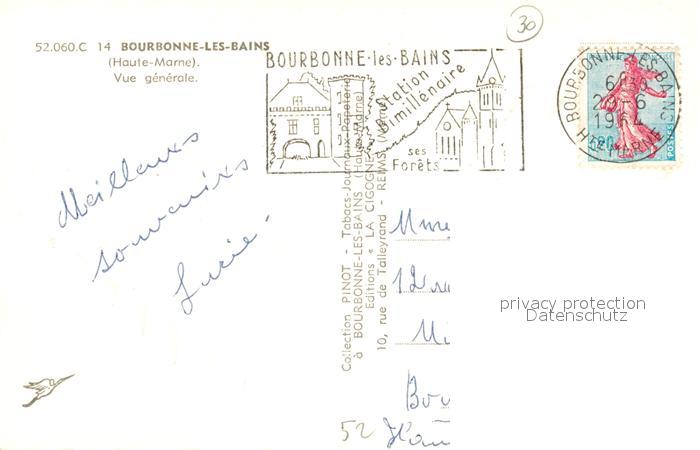 30
52.060.C 14 BOURBONNE-LES-BAINS
(Haute-Marne).
Vue générale.
BOURBONNE-les-BAINS
Station
Bimillénaire
ses
Forêts
BOURBONNE-LES-BAINS
20-6
1964
HTE MARNE
0,20
POSTES
Meilleurs
souvenirs
Lucie.
Collection PINOT - Tabacs-Journaux-Papeterie
à BOURBONNE-LES-BAINS (Haute-Marne)
Editions « LA CIGOGNE »
10, rue de Talleyrand - REIMS (Marne)
Mme
privacy protection
Datenschutz
52